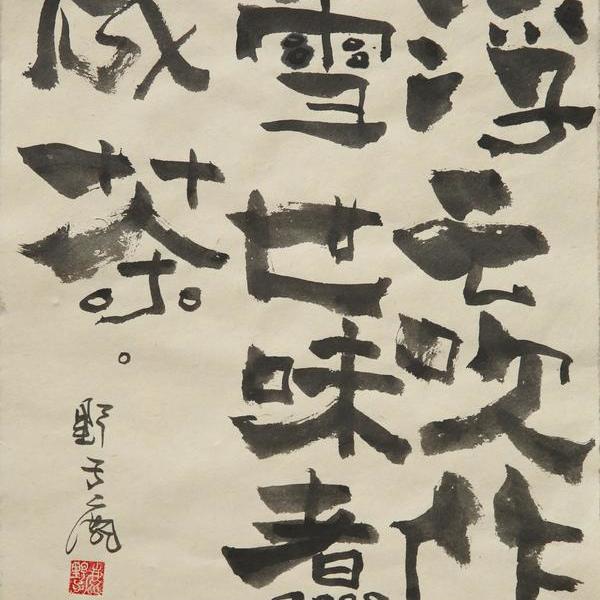 浮云吹作
雪世味煮
成茶。
野云